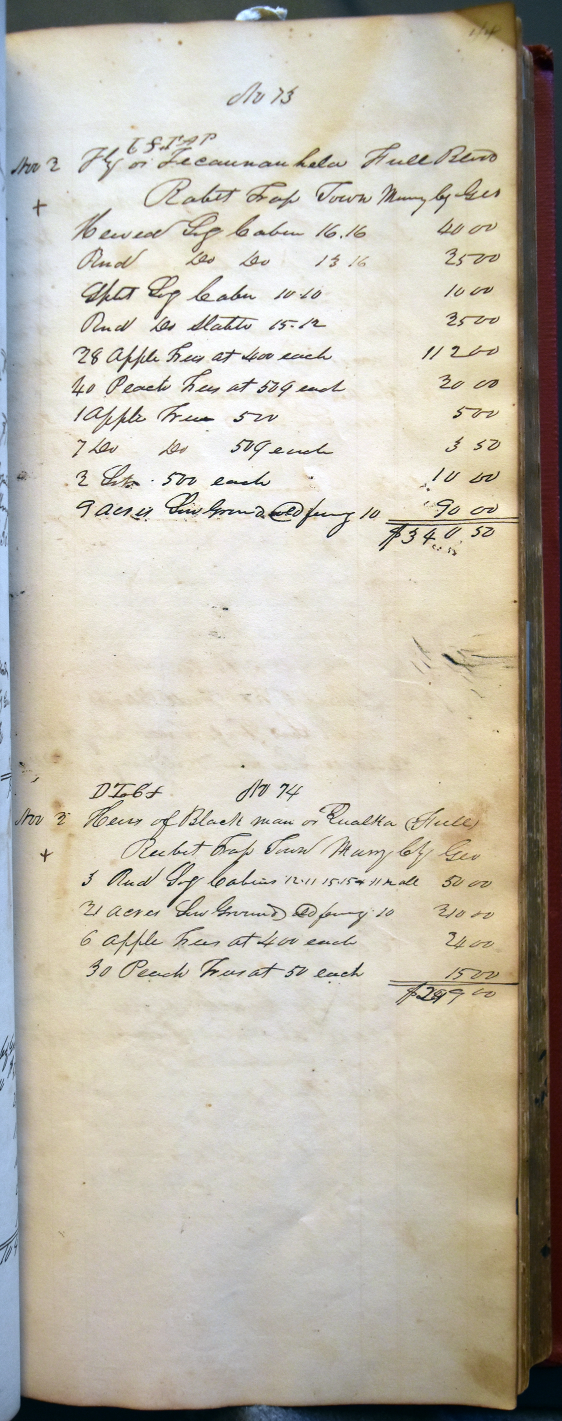 114
No 73
Nov 2 Fly or Tecaunauhela Full Blood
+ Rabit Trap Town Murry Cty Geo
Hewed Log Cabin 16.16 40 00
Rnd Do Do 13 16 25 00
Split Log Cabin 10-10 10 00
Rnd Do Stable 15-12 25 00
28 Apple Trees at 400 each 112 00
40 Peach Trees at 50¢ each 20 00
1 Apple Tree 500 5 00
7 Do Do 50¢ each 3 50
2 Lots 500 each 10 00
9 acres Low Ground old fencing 10 90 00
$340.50
No 74
Nov 2 Heirs of Black man or Qualka (Full)
+ Rabit Trap Town Murry Cty Geo
3 Rnd Log Cabins 12-11 15-15 & 11 50 00
21 acres Low Ground Old fencing 10 210 00
6 Apple Trees at 400 each 24 00
30 Peach Trees at 50 each 15 00
$299 00